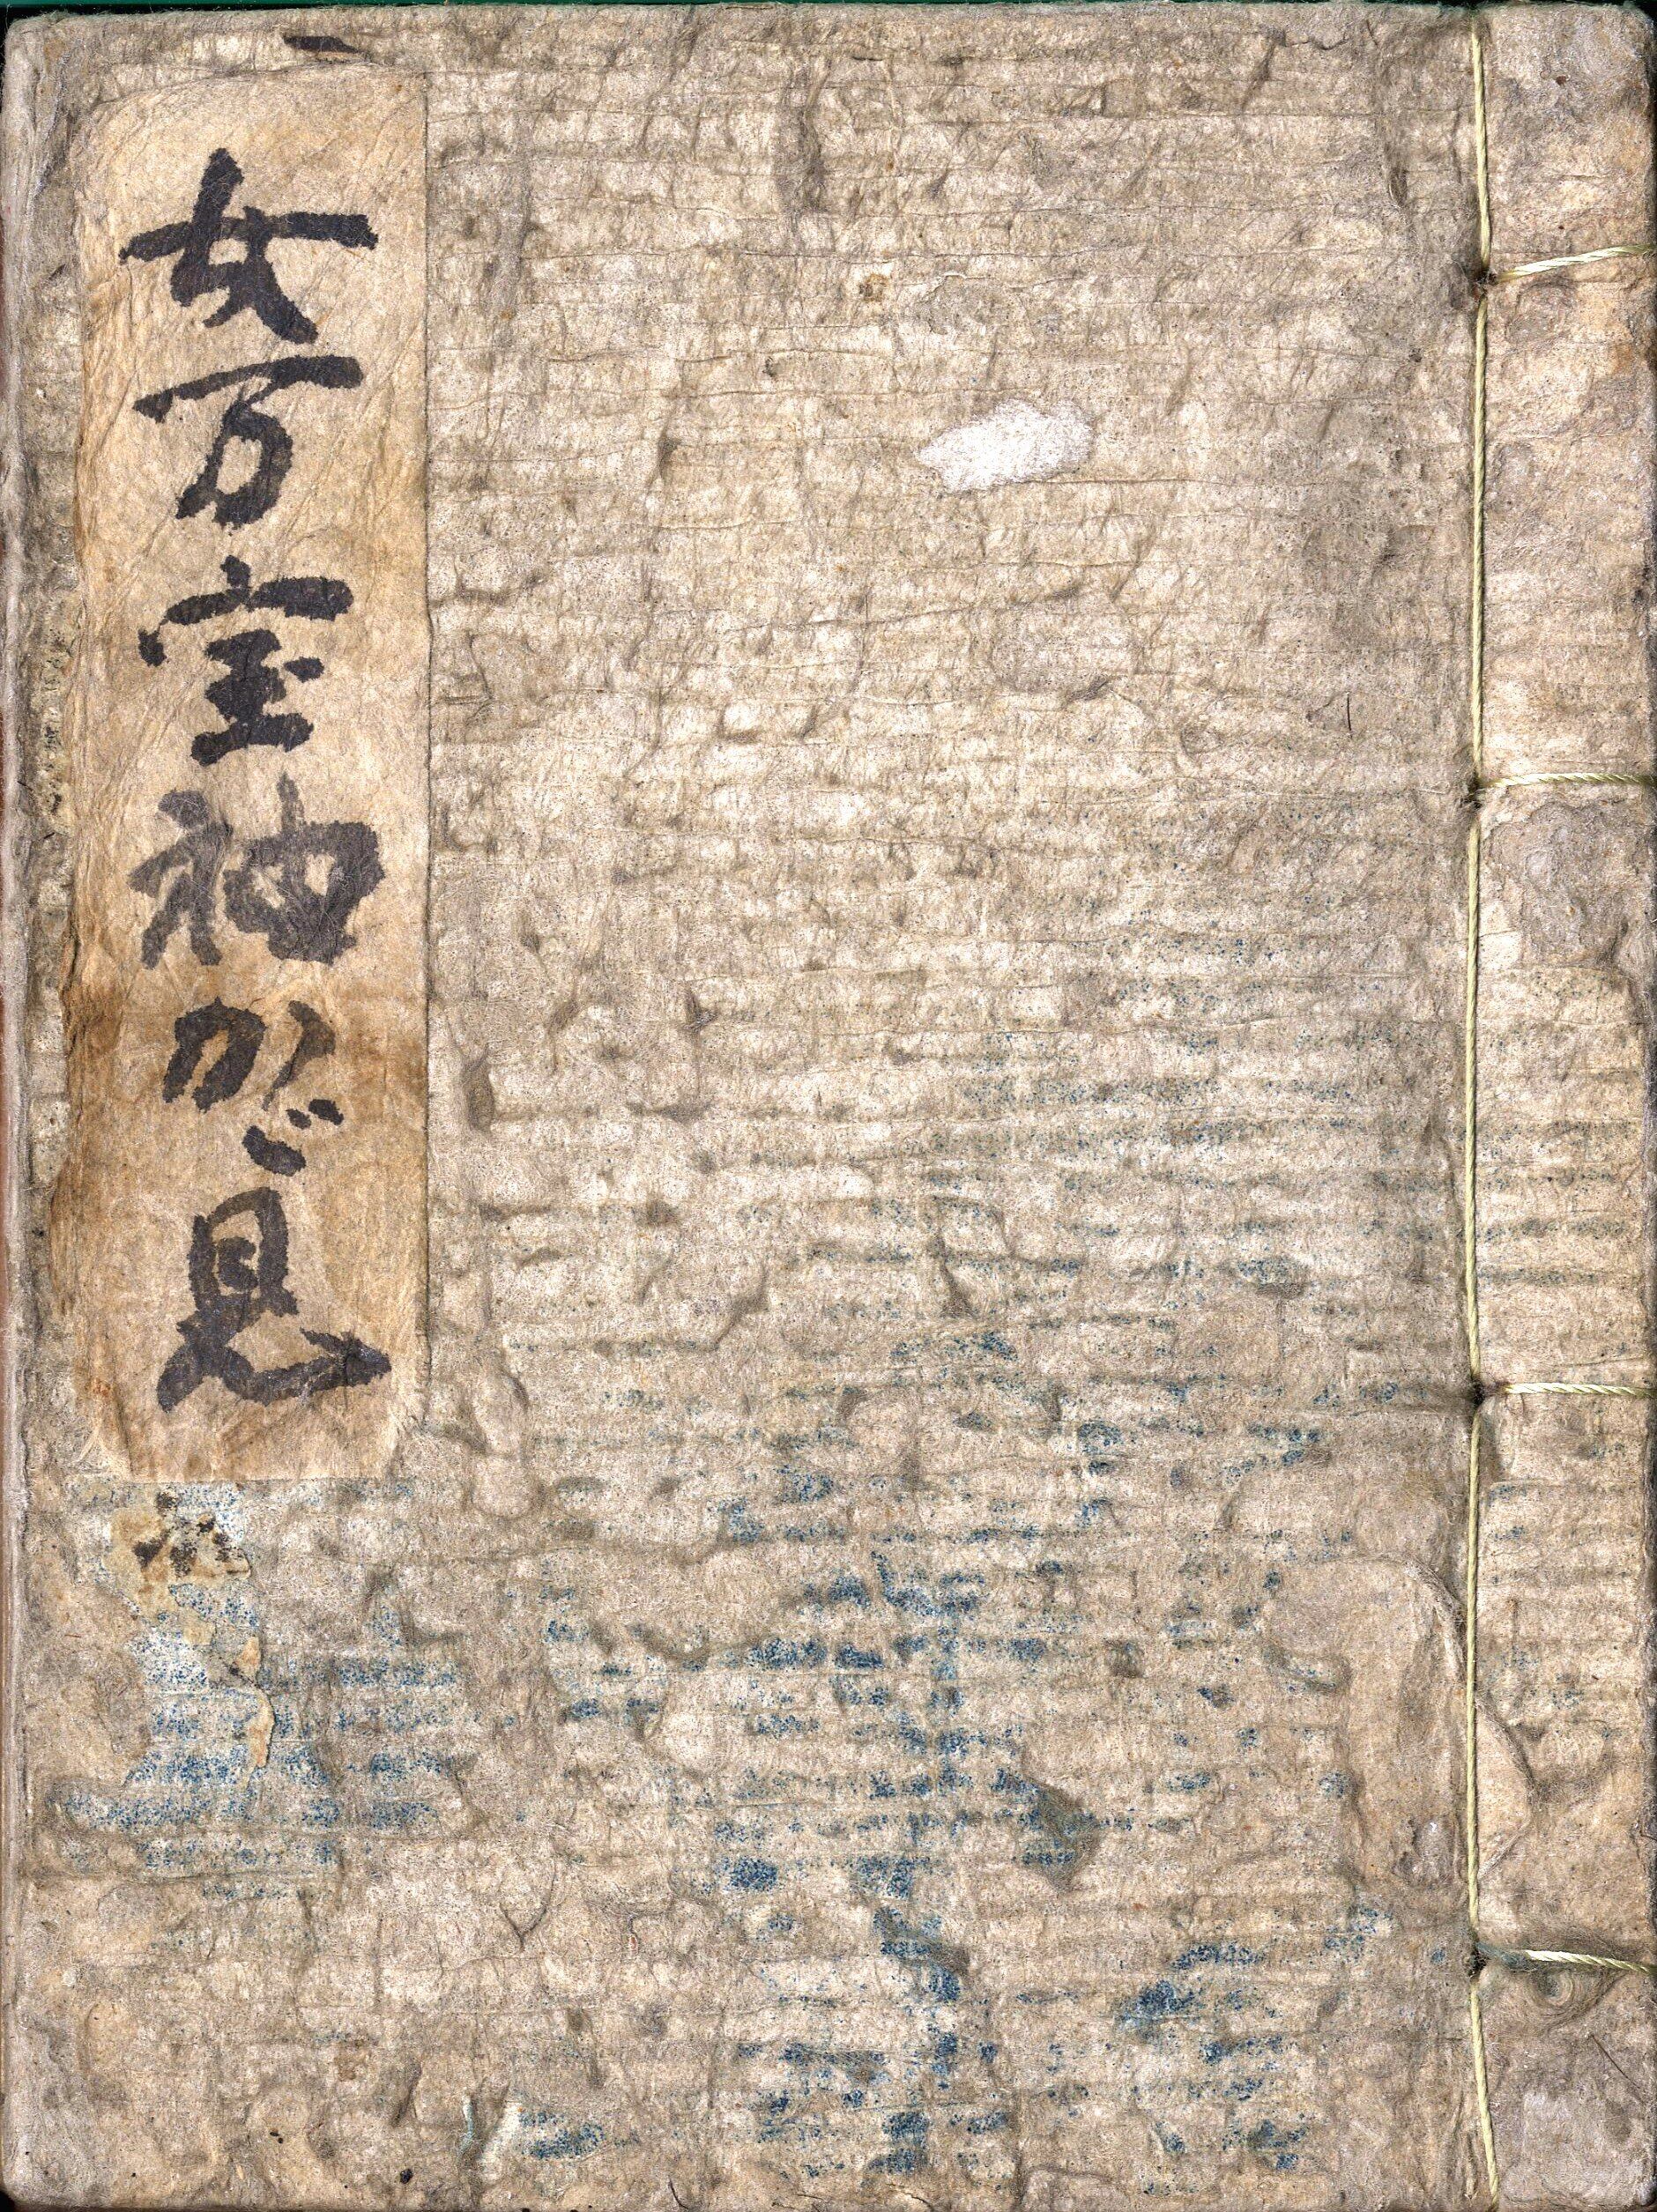 女万宝袖かゞ見